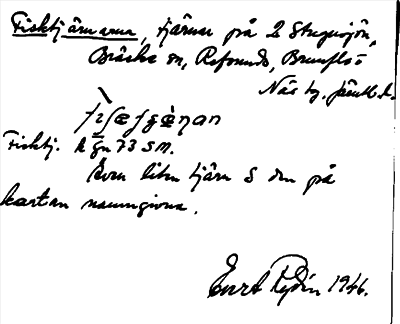 Fisktjärnarna, tjärnar på 2 Stugusjön,
Bräcke sn, Refsunds, Brunflo
Näs tg. Jämtl. l.
Fisktj. k gn 73 S M.
Även liten tjärn S den på
kartan namngivna.
Evert Rydin 1946.